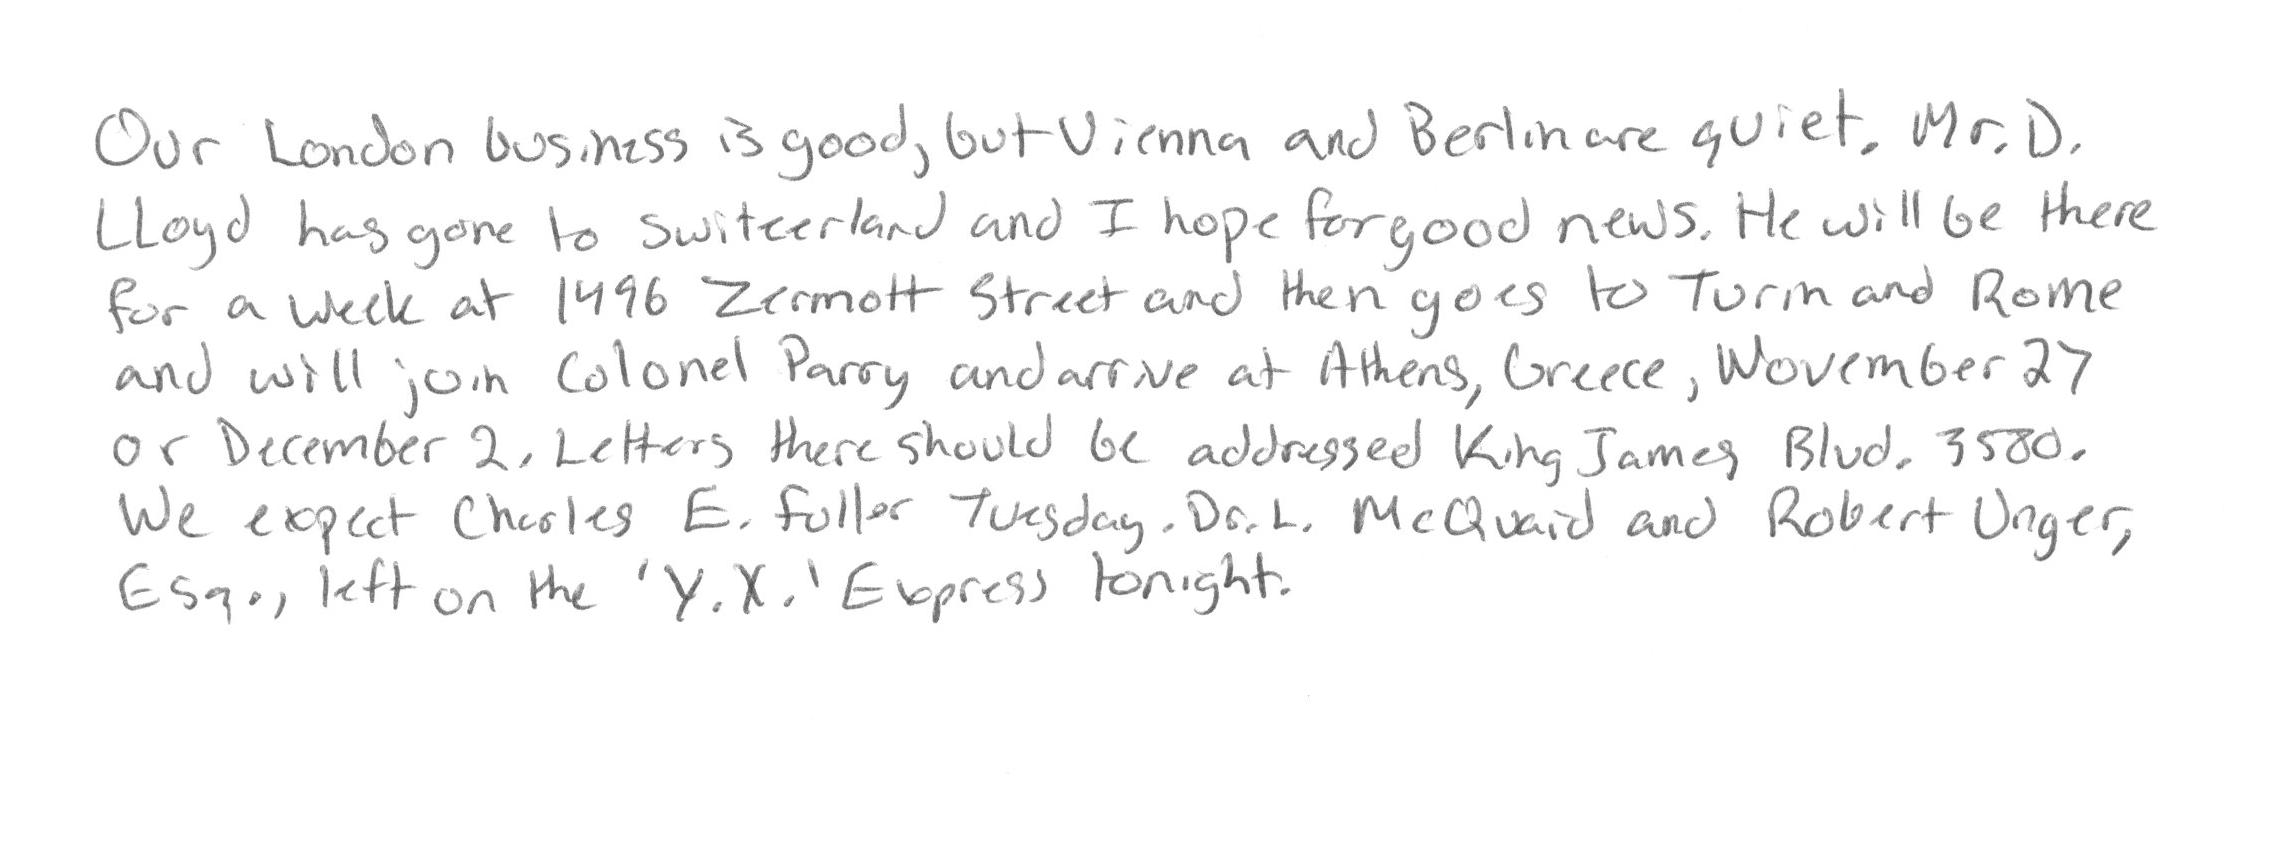 Our London business is good, but Vienna and Berlin are quiet. Mr. D.
LLoyd has gone to Switeerland and I hope for good news. He will be there
for a week at 1496 Zermott Street and then goes to Turin and Rome
and will join Colonel Parry and arrive at Athens, Greece, Wovember 27
or December 2. Letters there should be addressed King James Blvd. 3580.
We expect Charles E. Fuller Tuesday. Dr. L. McQuaid and Robert Unger,
Esq., left on the 'Y.X.' Express tonight.